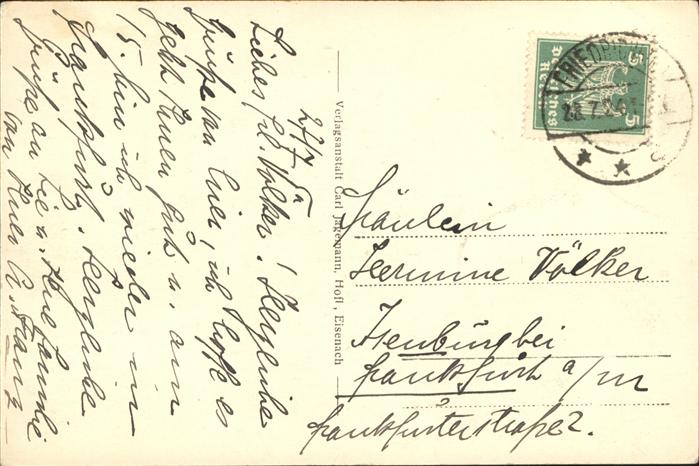 27/7
Liebes Frl. Völker! Herzliche
Grüße von hier, ich hoffe es
geht Ihnen gut u. am
15. bin ich wieder in
Frankfurt. Herzliche
Grüße an Sie u. Ihre Familie
von Ihrer
Verlagsanstalt Carl Jagemann, Hofl., Eisenach
5 5
Deutsches
Reich
FRIEDRICH
Fräulein
Hermine Völker
Isenburg bei
Frankfurt a/m
Frankfurterstraße 2.